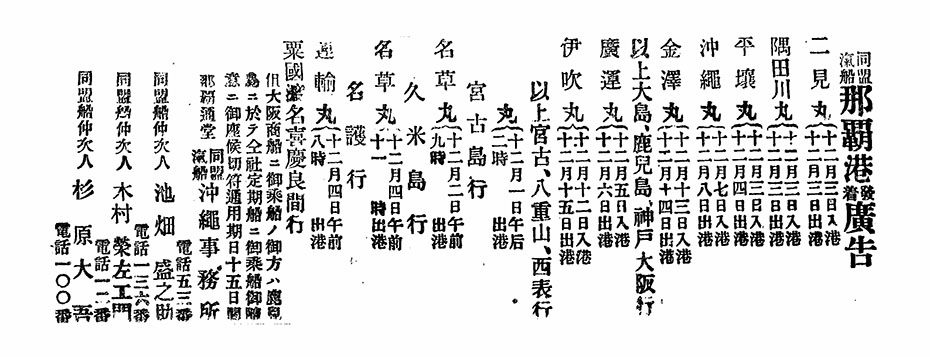 同盟汽船那覇港發着廣告
二見丸(十二月三日入港
十二月三日出港
隅田川丸(十二月三日入港
十二月三日出港
平壤丸(十二月三日入港
十二月四日出港
沖繩丸(十二月七日入港
十二月八日出港
金澤丸(十二月十三日入港
十二月十四日出港
以上大島、鹿兒島、神戸大阪行
廣運丸(十二月五日入港
十二月六日出港
伊吹丸(十二月十二日入港
十二月十五日出港
以上宮古、八重山、西表行
宮古島行
丸(十二月一日午后
二時出港
名草丸(十二月二日午前
九時出港
久米島行
名草丸(十二月四日午前
十一時出港
名護行
運輸丸(十二月四日午前
八時出港
粟國渡名喜慶良間行
但大阪商船ニ御乘船ノ御方ハ鹿兒
島ニ於テ仝社定期船ニ御乘船御隨
意ニ御座候切符通用期日十五日間
那覇通堂同盟汽船沖繩事務所
電話五三番
同盟船仲次人池畑盛之助
電話一三六番
同盟船仲次人木村榮左工門
電話一二番
同盟船仲次人杉原大吾
電話一〇〇番